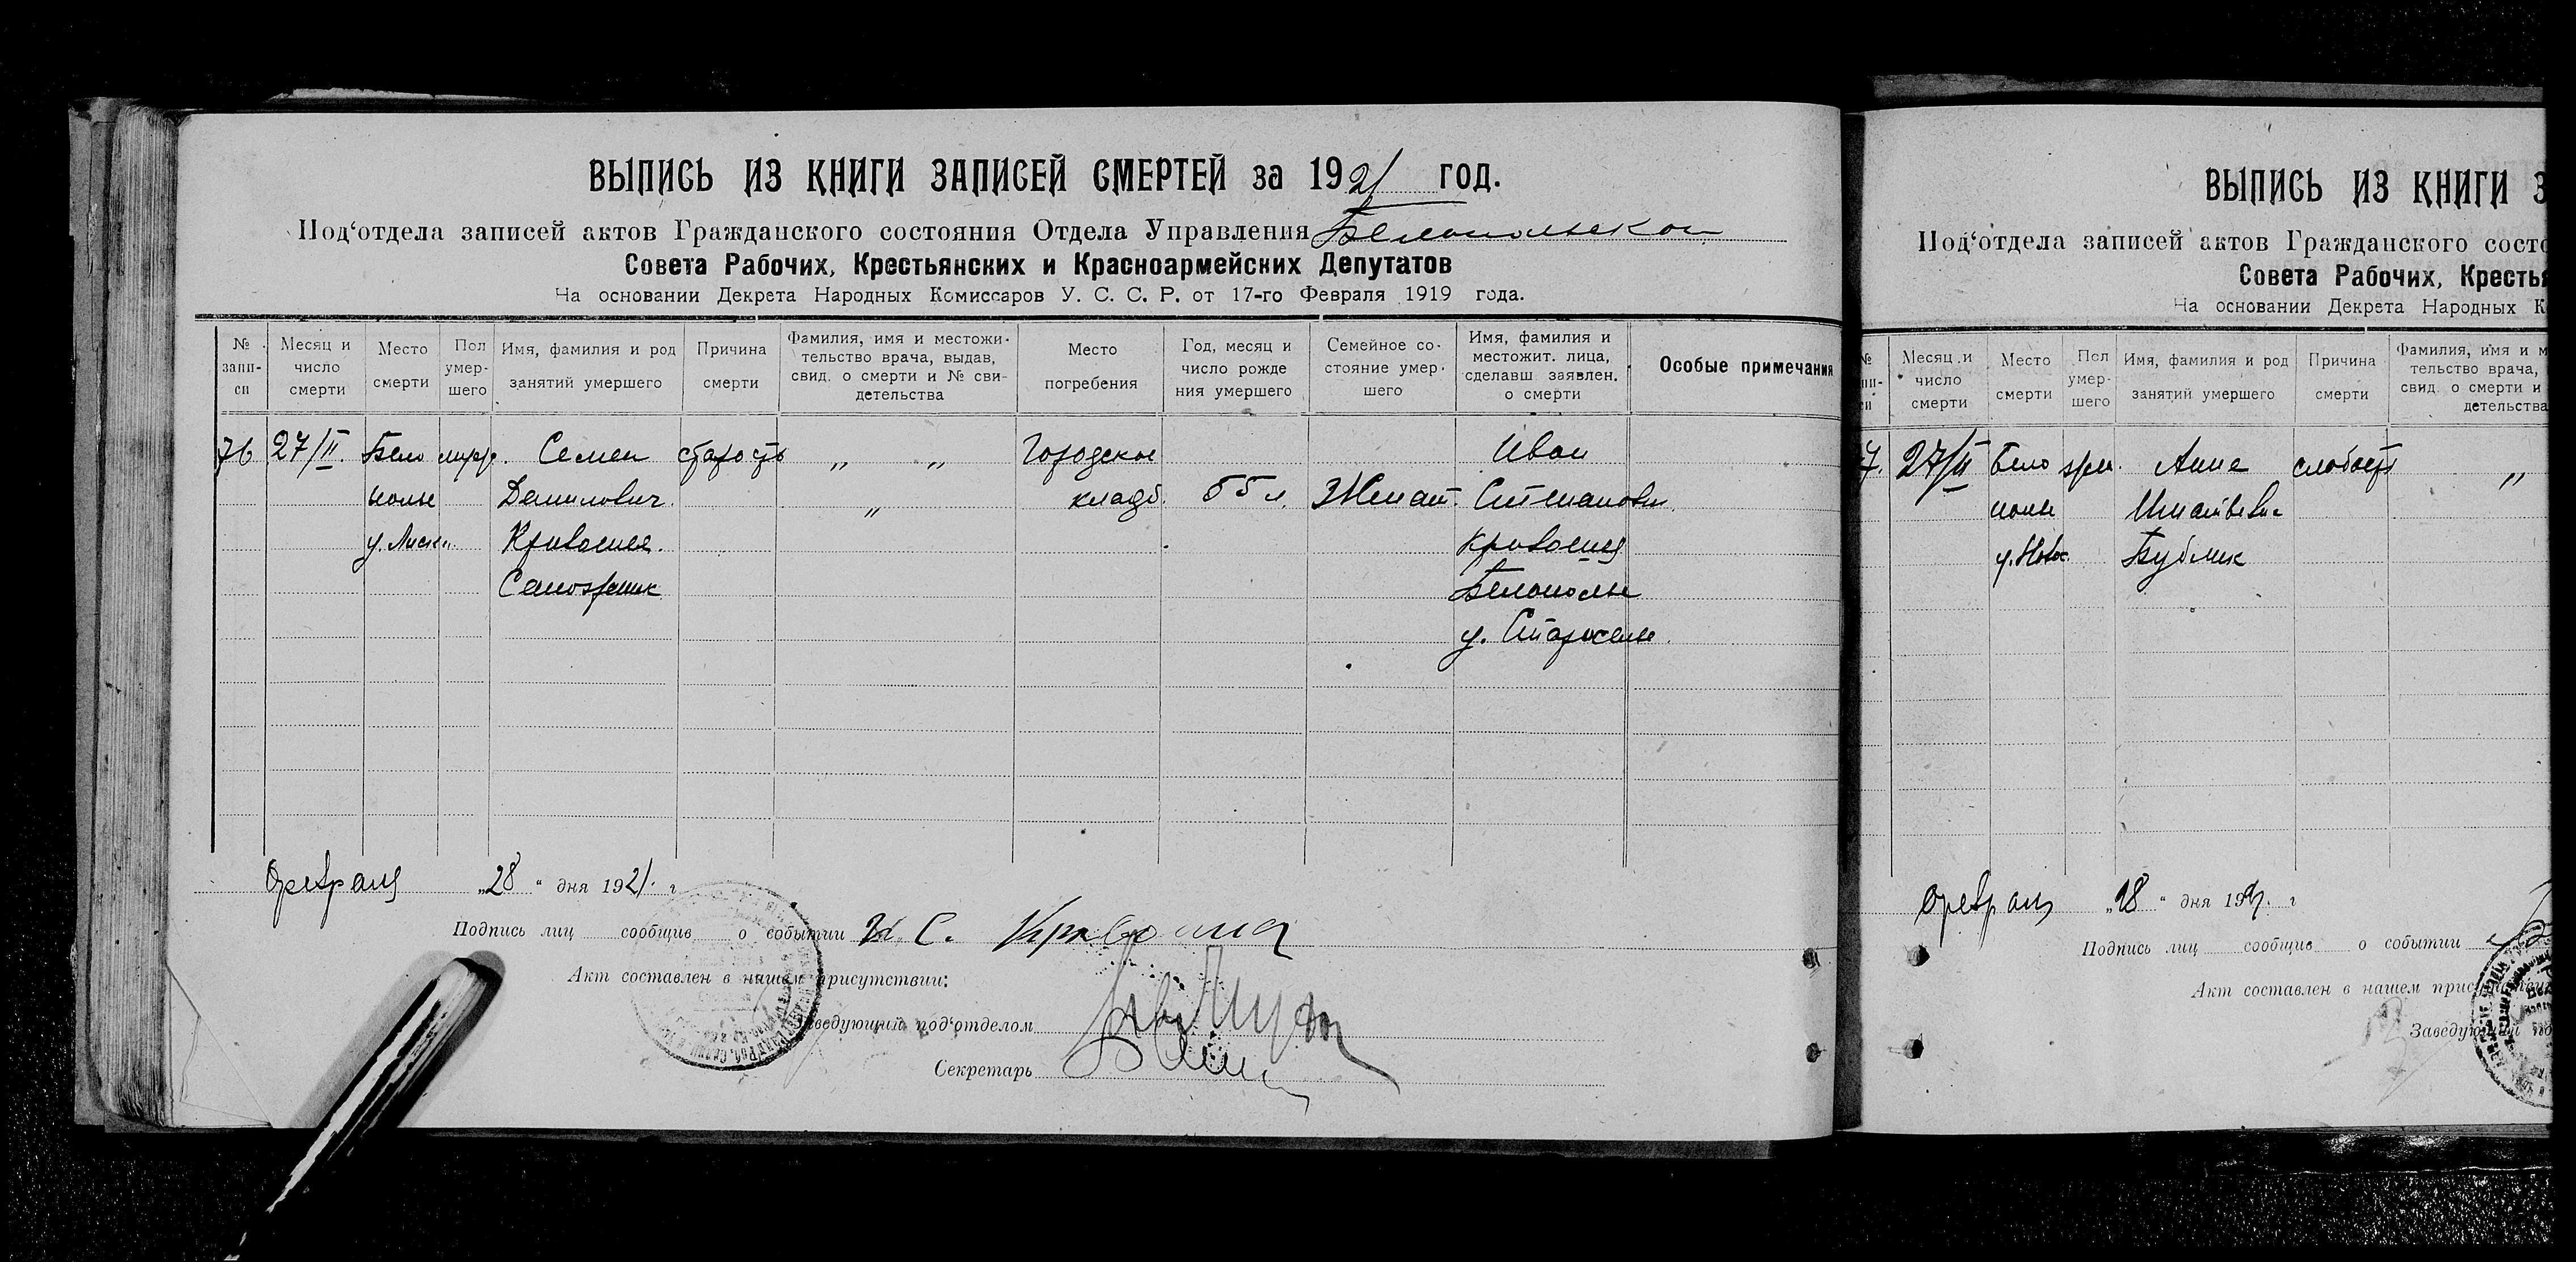 ВЫПИСЬ ИЗ КНИГИ ЗАПИСЕЙ СМЕРТЕЙ за 1921 год.
Под‘отдела записей актов Гражданского состояния Отдела Управления Белопольском
Совета Рабочих, Крестьянских и Красноармейских Депутатов
На основании Декрета Народных Комиссаров У. С. С. Р. от 17-го Февраля 1919 года.
№ записи
Месяц и число смерти
Место смерти
Пол умершего
Имя, фамилия и род занятий умершего
Причина смерти
Фамилия, имя и местожительство врача, выдав, свид. о смерти и № свидетельства
Место погребения
Год, месяц и число рождения умершего
Семейное состояние умершего
Имя, фамилия и местожит. лица, сделавш заявлен. о смерти
Особые примечания
76 27/II. Бело Семен старость „ „ Городское Иван
полье Данилович „ кладб. 55 л. Женат.
Кривошея. Кривошея
Белополье
у. Староселье
Февраля „28“ дня 1921. г
Подпись лиц сообщив о событии И. С. Кривошея
Акт составлен в нашем присутствии:
Заведующий под‘отделом
Секретарь
ВЫПИСЬ ИЗ КНИГИ З
Под‘отдела записей актов Гражданского состо
Совета Рабочих, Крестья
На основании Декрета Народных К
Месяц и число смерти
Место смерти
Пол умершего
Имя, фамилия и род занятий умершего
Причина смерти
Фамилия, имя и м
тельство врача,
свид. о смерти и
детельства
7. 27/II Бело Анна слабость „
полье Игнатьевна
Бублик
Февраля „28“ дня 1921. г
Подпись лиц сообщив о событии
Акт составлен в нашем прис
Заведующий по